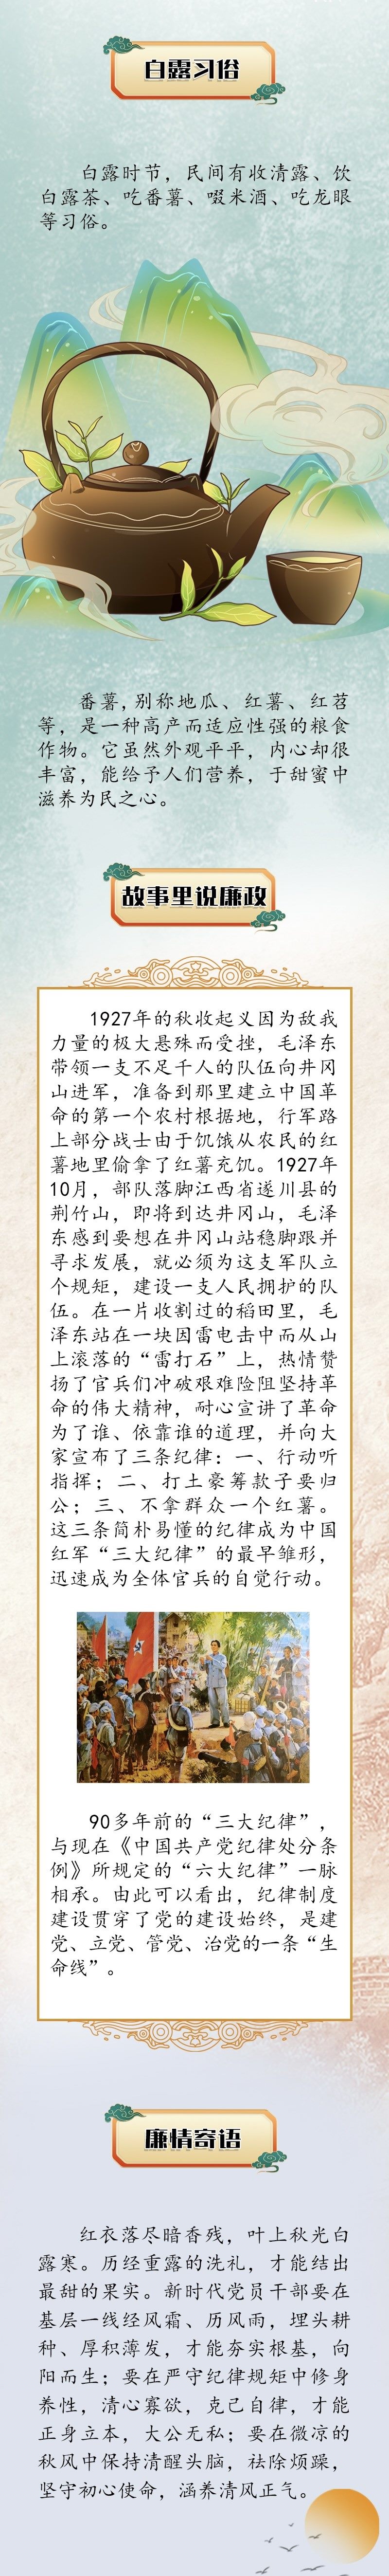 白露习俗
白露时节，民间有收清露、饮
白露茶、吃番薯、啜米酒、吃龙眼
等习俗。
番薯，别称地瓜、红薯、红苕
等，是一种高产而适应性强的粮食
作物。它虽然外观平平，内心却很
丰富，能给予人们营养，于甜蜜中
滋养为民之心。
故事里说廉政
1927年的秋收起义因为敌我
力量的极大悬殊而受挫，毛泽东
带领一支不足千人的队伍向井冈
山进军，准备到那里建立中国革
命的第一个农村根据地，行军路
上部分战士由于饥饿从农民的红
薯地里偷拿了红薯充饥。1927年
10月，部队落脚江西省遂川县的
荆竹山，即将到达井冈山，毛泽
东感到要想在井冈山站稳脚跟并
寻求发展，就必须为这支军队立
个规矩，建设一支人民拥护的队
伍。在一片收割过的稻田里，毛
泽东站在一块因雷电击中而从山
上滚落的“雷打石”上，热情赞
扬了官兵们冲破艰难险阻坚持革
命的伟大精神，耐心宣讲了革命
为了谁、依靠谁的道理，并向大
家宣布了三条纪律：一、行动听
指挥；二、打土豪筹款子要归
公；三、不拿群众一个红薯。
这三条简朴易懂的纪律成为中国
红军“三大纪律”的最早雏形，
迅速成为全体官兵的自觉行动。
90多年前的“三大纪律”，
与现在《中国共产党纪律处分条
例》所规定的“六大纪律”一脉
相承。由此可以看出，纪律制度
建设贯穿了党的建设始终，是建
党、立党、管党、治党的一条“生
命线”。
廉情寄语
红衣落尽暗香残，叶上秋光白
露寒。历经重露的洗礼，才能结出
最甜的果实。新时代党员干部要在
基层一线经风霜、历风雨，埋头耕
种、厚积薄发，才能夯实根基，向
阳而生；要在严守纪律规矩中修身
养性，清心寡欲，克己自律，才能
正身立本，大公无私；要在微凉的
秋风中保持清醒头脑，祛除烦躁，
坚守初心使命，涵养清风正气。